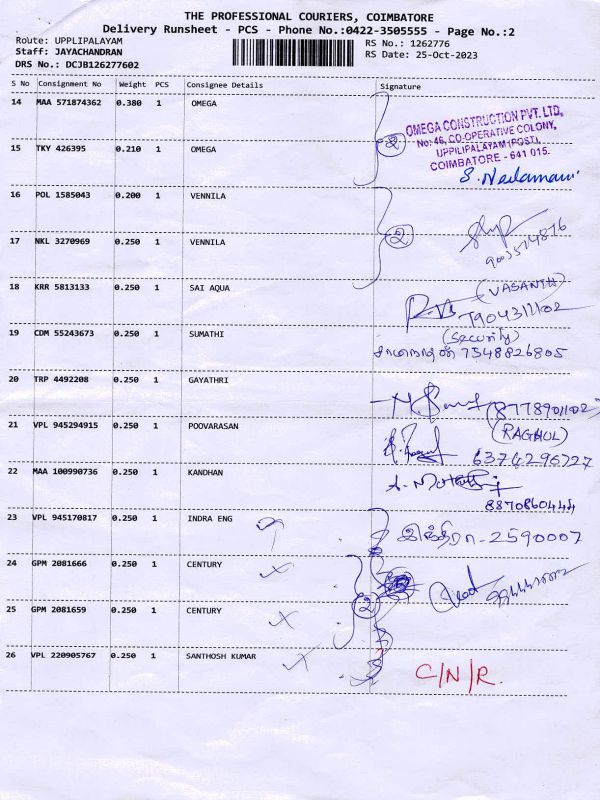 THE PROFESSIONAL COURIERS, COIMBATORE
Delivery Runsheet - PCS - Phone No.:0422-3505555 - Page No.:2
Route: UPPLIPALAYAM
Staff: JAYACHANDRAN
DRS No.: DCJB126277602
RS No.: 1262776
RS Date: 25-Oct-2023
S No Consignment No Weight PCS Consignee Details Signature
14 MAA 571874362 0.380 1 OMEGA
OMEGA CONSTRUCTION PVT. LTD,
No: 46, CO-OPERATIVE COLONY,
UPPILIPALAYAM (POST),
COIMBATORE - 641 015.
15 TKY 426395 0.210 1 OMEGA
2
16 POL 1585043 0.200 1 VENNILA
17 NKL 3270969 0.250 1 VENNILA
2
18 KRR 5813133 0.250 1 SAI AQUA
(VASANTH)
7904311102
19 CDM 55243673 0.250 1 SUMATHI
(Security)
7548826805
20 TRP 4492208 0.250 1 GAYATHRI
(8778901102)
21 VPL 945294915 0.250 1 POOVARASAN
(RAGHUL)
6374296727
22 MAA 100990736 0.250 1 KANDHAN
8870860444
23 VPL 945170817 0.250 1 INDRA ENG
இந்திரா - 2590007
24 GPM 2081666 0.250 1 CENTURY
25 GPM 2081659 0.250 1 CENTURY
2
26 VPL 220905767 0.250 1 SANTHOSH KUMAR
C/N/R.